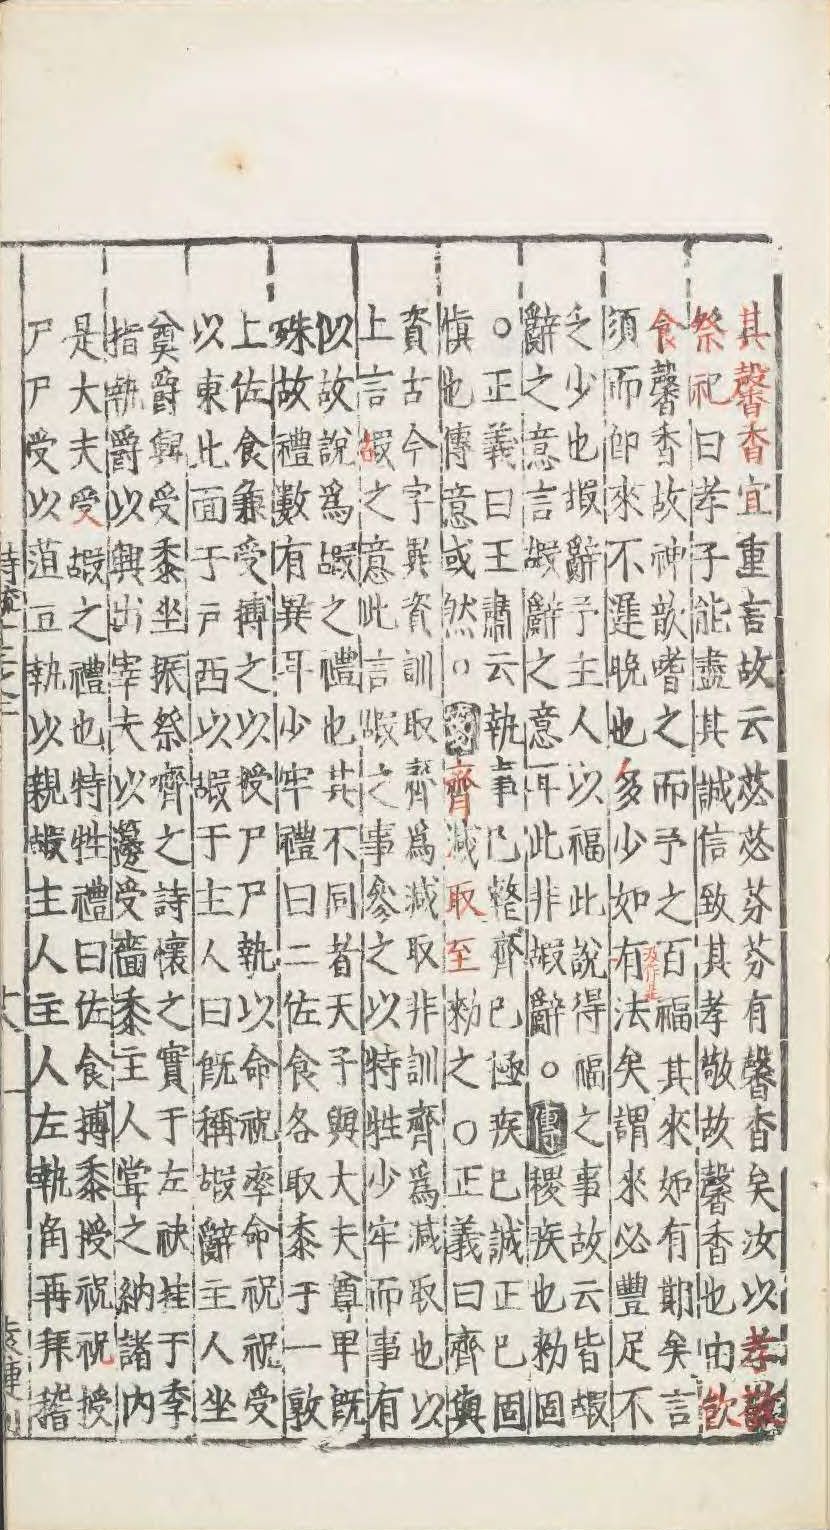 其馨香宜重言故云苾苾芬芬有馨香矣汝以孝敬
祭祀曰孝子能盡其誠信致其孝敬故馨香也由飲
食馨香故神歆嗜之而予之百福其來如有期矣言
須而即來不遲晚也多少如有法矣謂來必豐足不
乏少也嘏辭予主人以福此說得福之事故云皆嘏
辭之意言嘏辭之意耳此非嘏辭○傳稷疾也勑固
○正義曰王肅云執事已整齊已極疾已誠正已固
慎也傳意或然○箋齊減取至勑之○正義曰齊與
資古今字異資訓取齊爲減取非訓齊爲減取也以
上言嘏之意此言嘏之事參之以特牲少牢而事有
似故說爲嘏之禮也其不同者天子與大夫尊卑既
殊故禮數有異耳少牢禮曰二佐食各取黍于一敦
上佐食兼受搏之以授尸尸執以命祝卒命祝祝受
以東北面于戶西以嘏于主人曰既稱嘏辭主人坐
奠爵興受黍坐振祭嚌之詩懷之實于左袂挂于季
指執爵以興出宰夫以籩受嗇黍主人嘗之納諸內
是大夫受嘏之禮也特牲禮曰佐食搏黍授祝祝授
尸尸受以菹豆執以親嘏主人主人左執角再拜稽